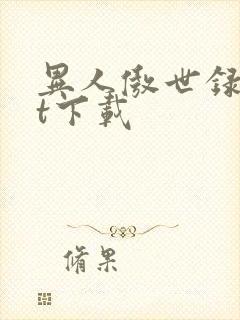 異人傲世録
t下載
脩果